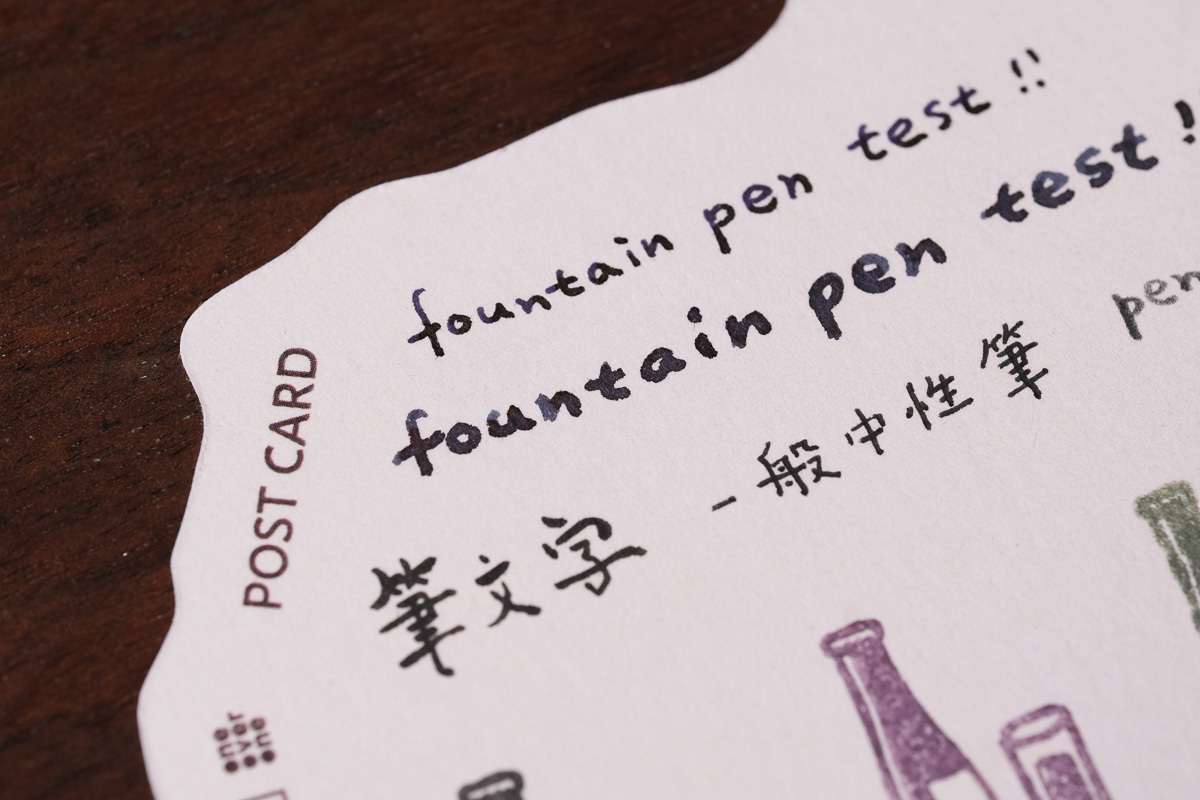 fountain pen test !!
fountain pen test !
筆文字 一般中性筆 pen
POST CARD
one
over
one